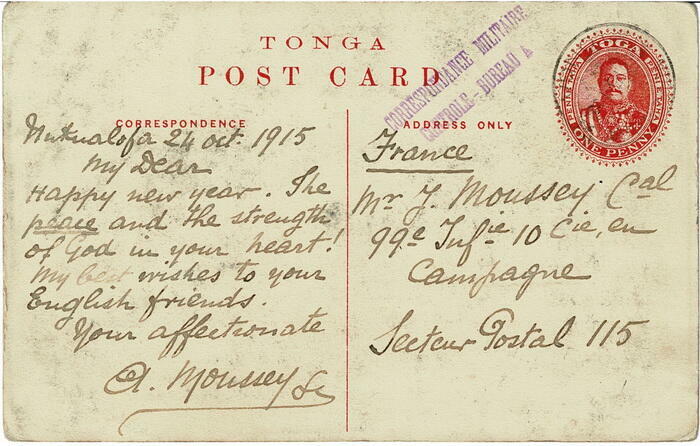 TONGA
POST CARD
CORRESPONDANCE MILITAIRE
CONTROLE BUREAU A
TOGA
PENI E TAHA
PENI E TAHA
ONE PENNY
CORRESPONDENCE
Nukualofa 24 oct. 1915
My Dear
Happy new year. The
peace and the strength
of God in your heart!
My best wishes to your
English friends.
Your affectionate
A. Moussey
ADDRESS ONLY
France
Mr J. Moussey Cal
99e Infie 10 Cie, en
Campagne
Secteur Postal 115